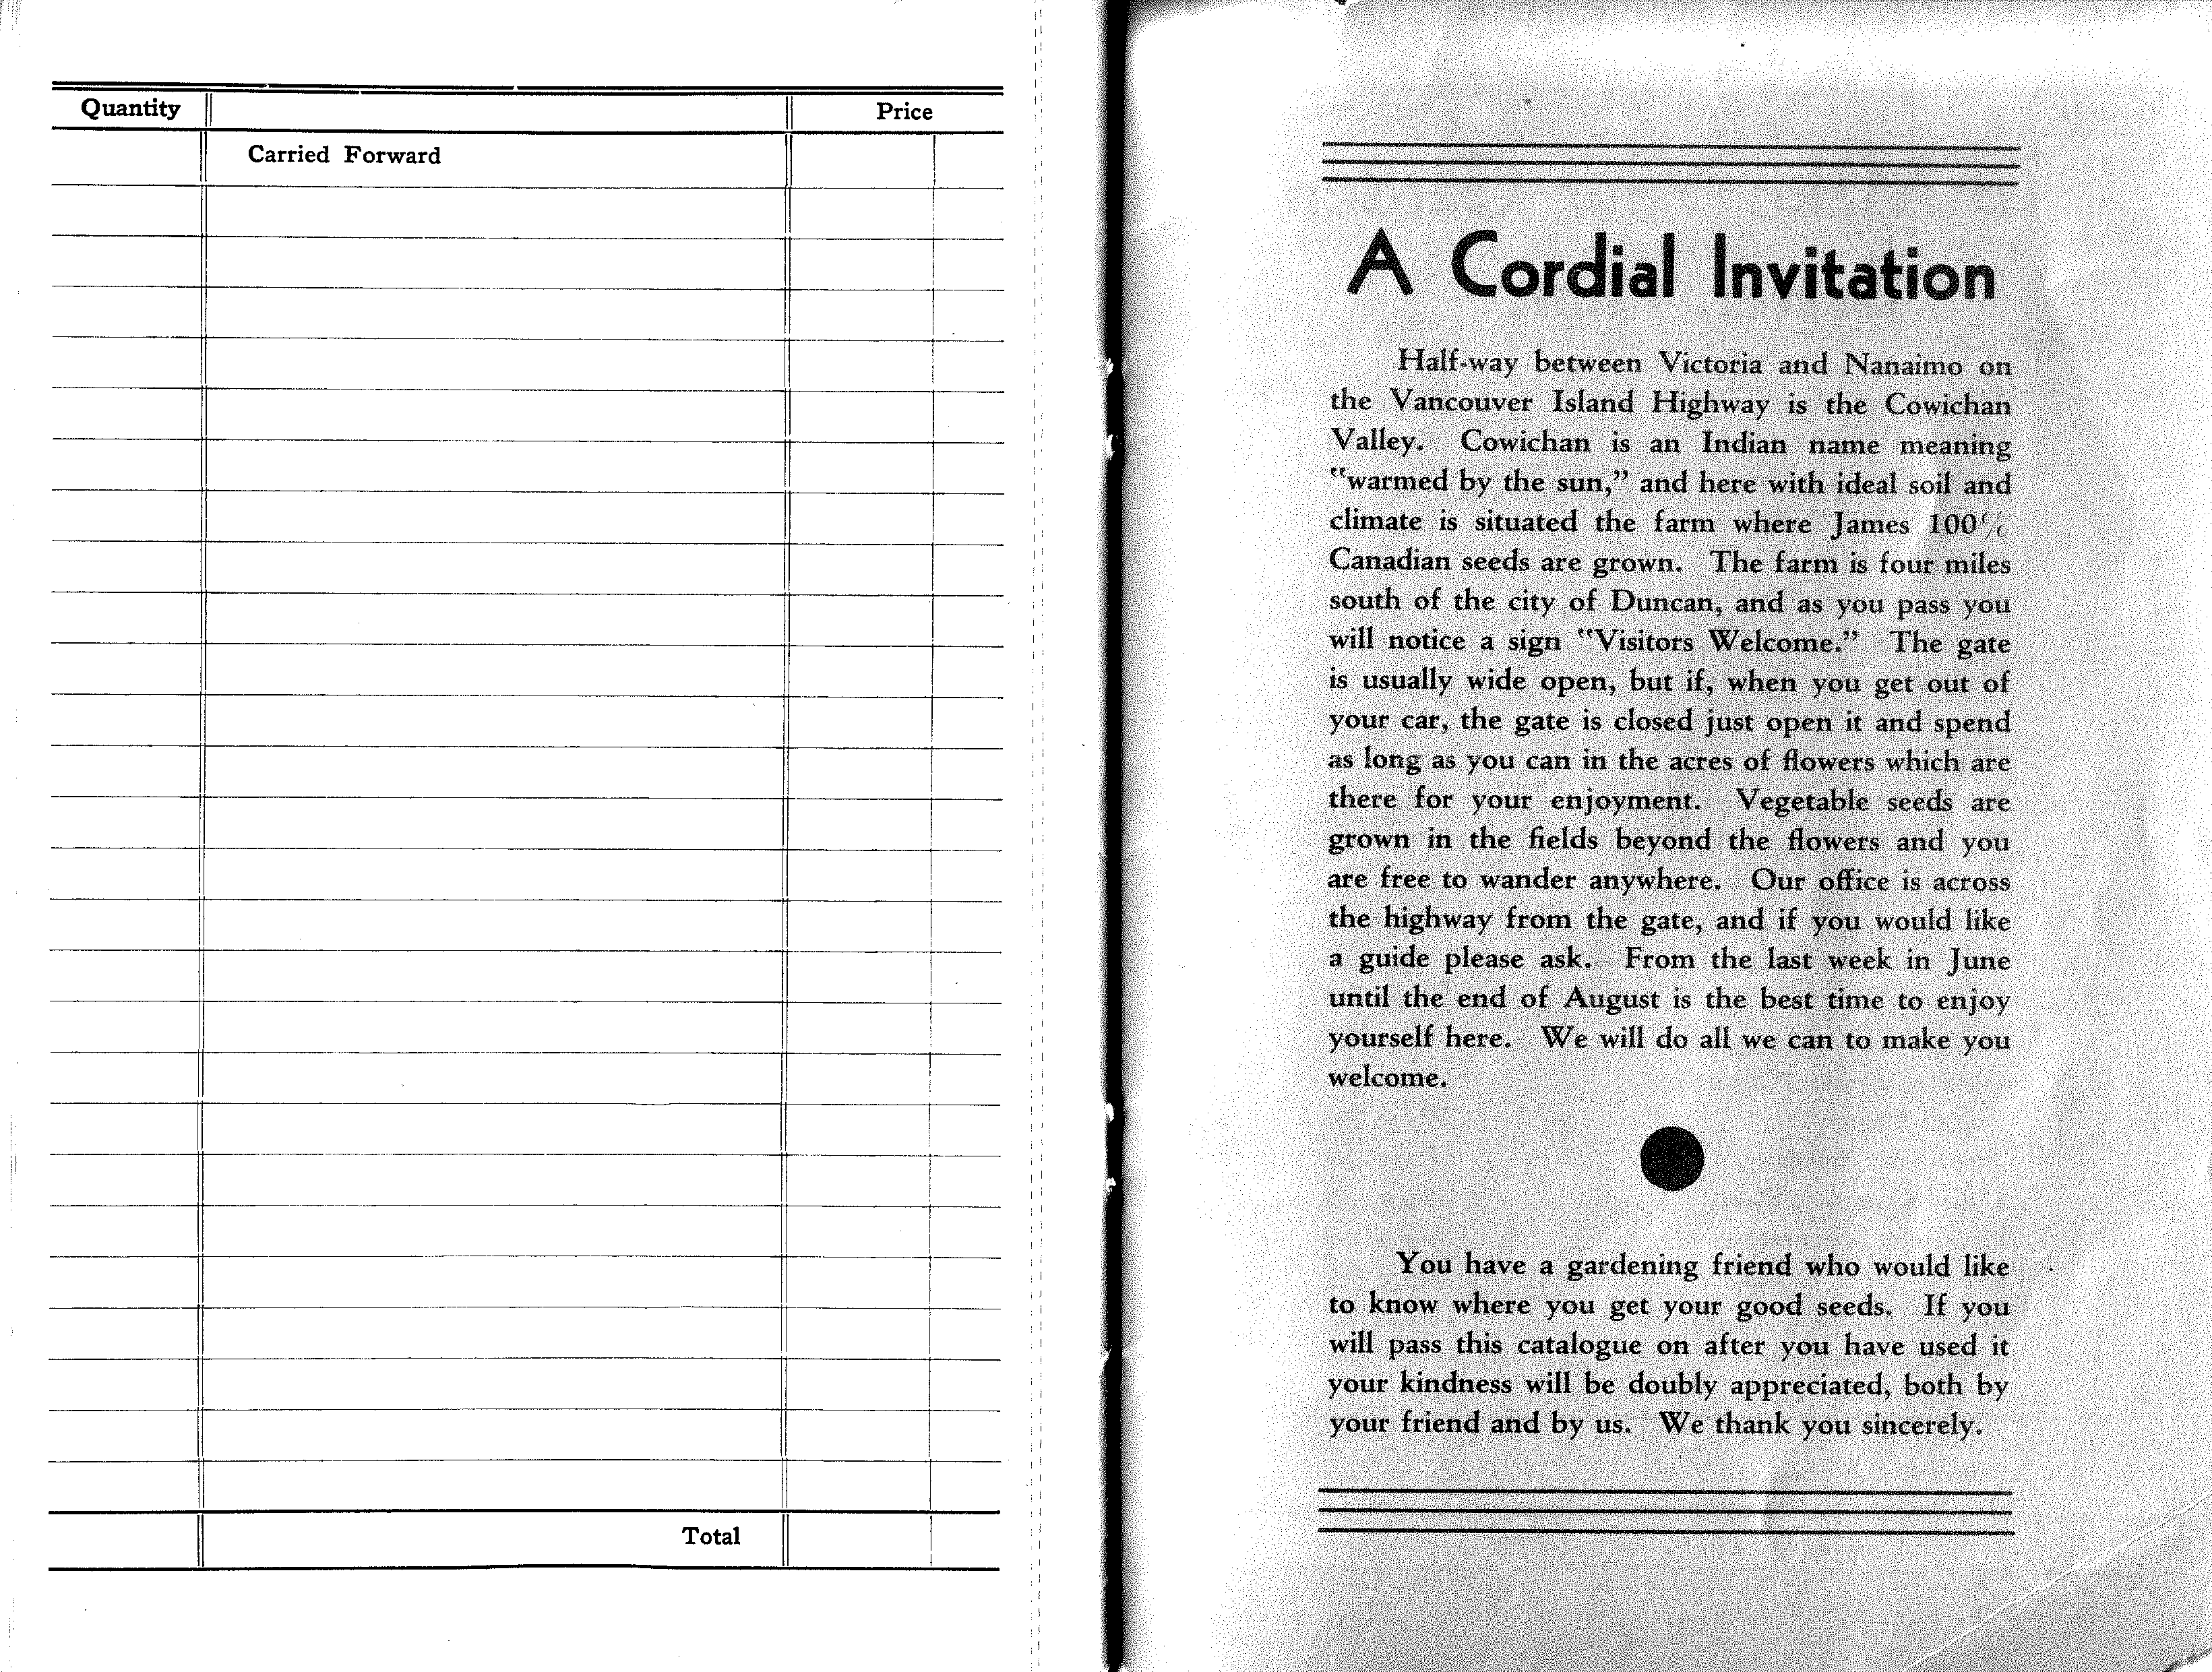 Quantity Price
Carried Forward
Total
A Cordial Invitation
Half-way between Victoria and Nanaimo on
the Vancouver Island Highway is the Cowichan
Valley. Cowichan is an Indian name meaning
"warmed by the sun," and here with ideal soil and
climate is situated the farm where James 100%
Canadian seeds are grown. The farm is four miles
south of the city of Duncan, and as you pass you
will notice a sign "Visitors Welcome." The gate
is usually wide open, but if, when you get out of
your car, the gate is closed just open it and spend
as long as you can in the acres of flowers which are
there for your enjoyment. Vegetable seeds are
grown in the fields beyond the flowers and you
are free to wander anywhere. Our office is across
the highway from the gate, and if you would like
a guide please ask. From the last week in June
until the end of August is the best time to enjoy
yourself here. We will do all we can to make you
welcome.
You have a gardening friend who would like
to know where you get your good seeds. If you
will pass this catalogue on after you have used it
your kindness will be doubly appreciated, both by
your friend and by us. We thank you sincerely.